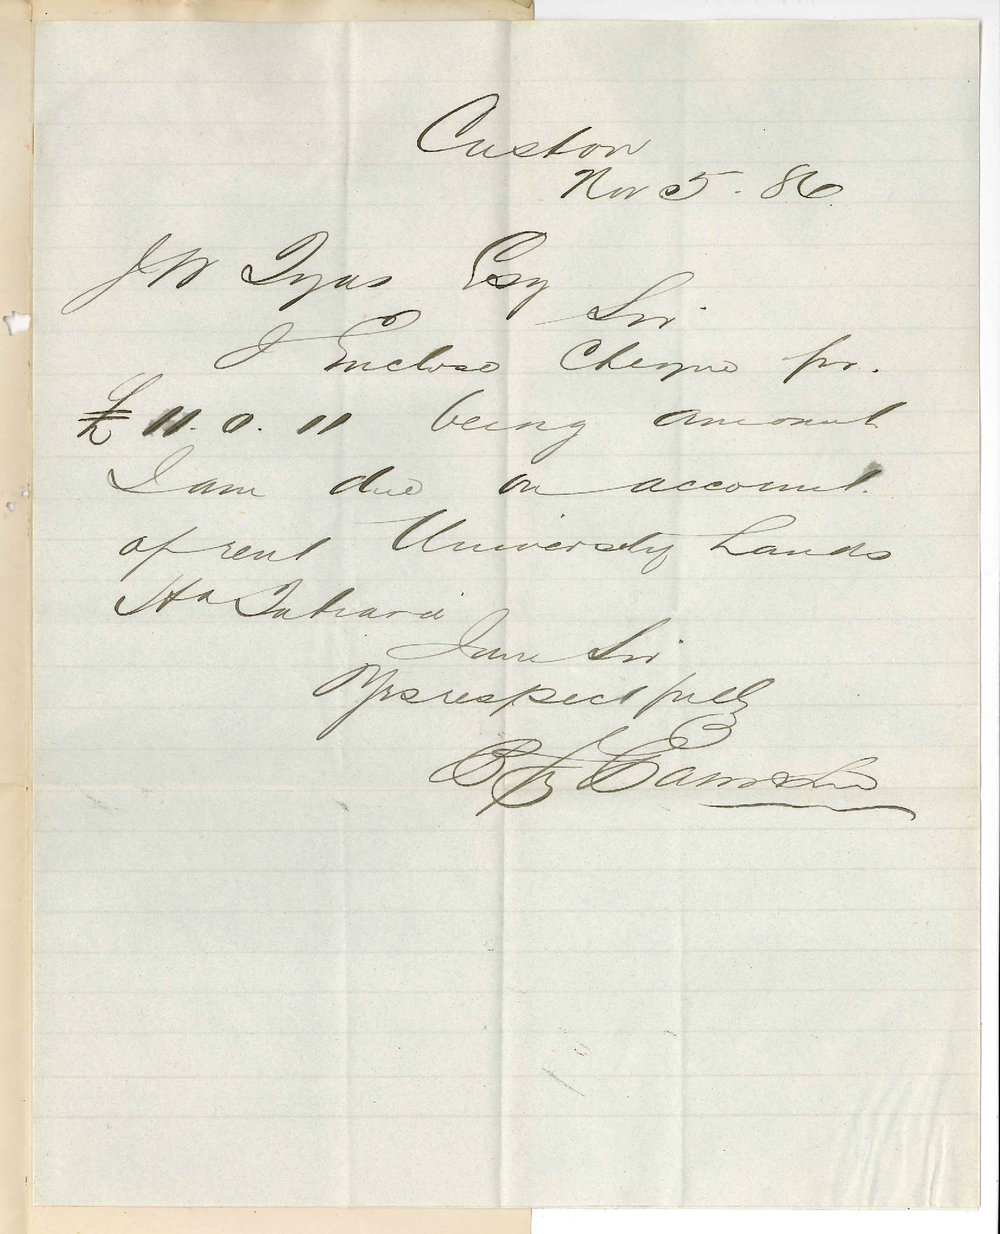 Custon
Nov 5. 86.
J W Tyas Esq
Sir
I Enclose Cheque for.
£11.0.11 being amount
I am due on account.
of rent University Lands
Hd Tatiara
I am Sir
Yrs respectfully